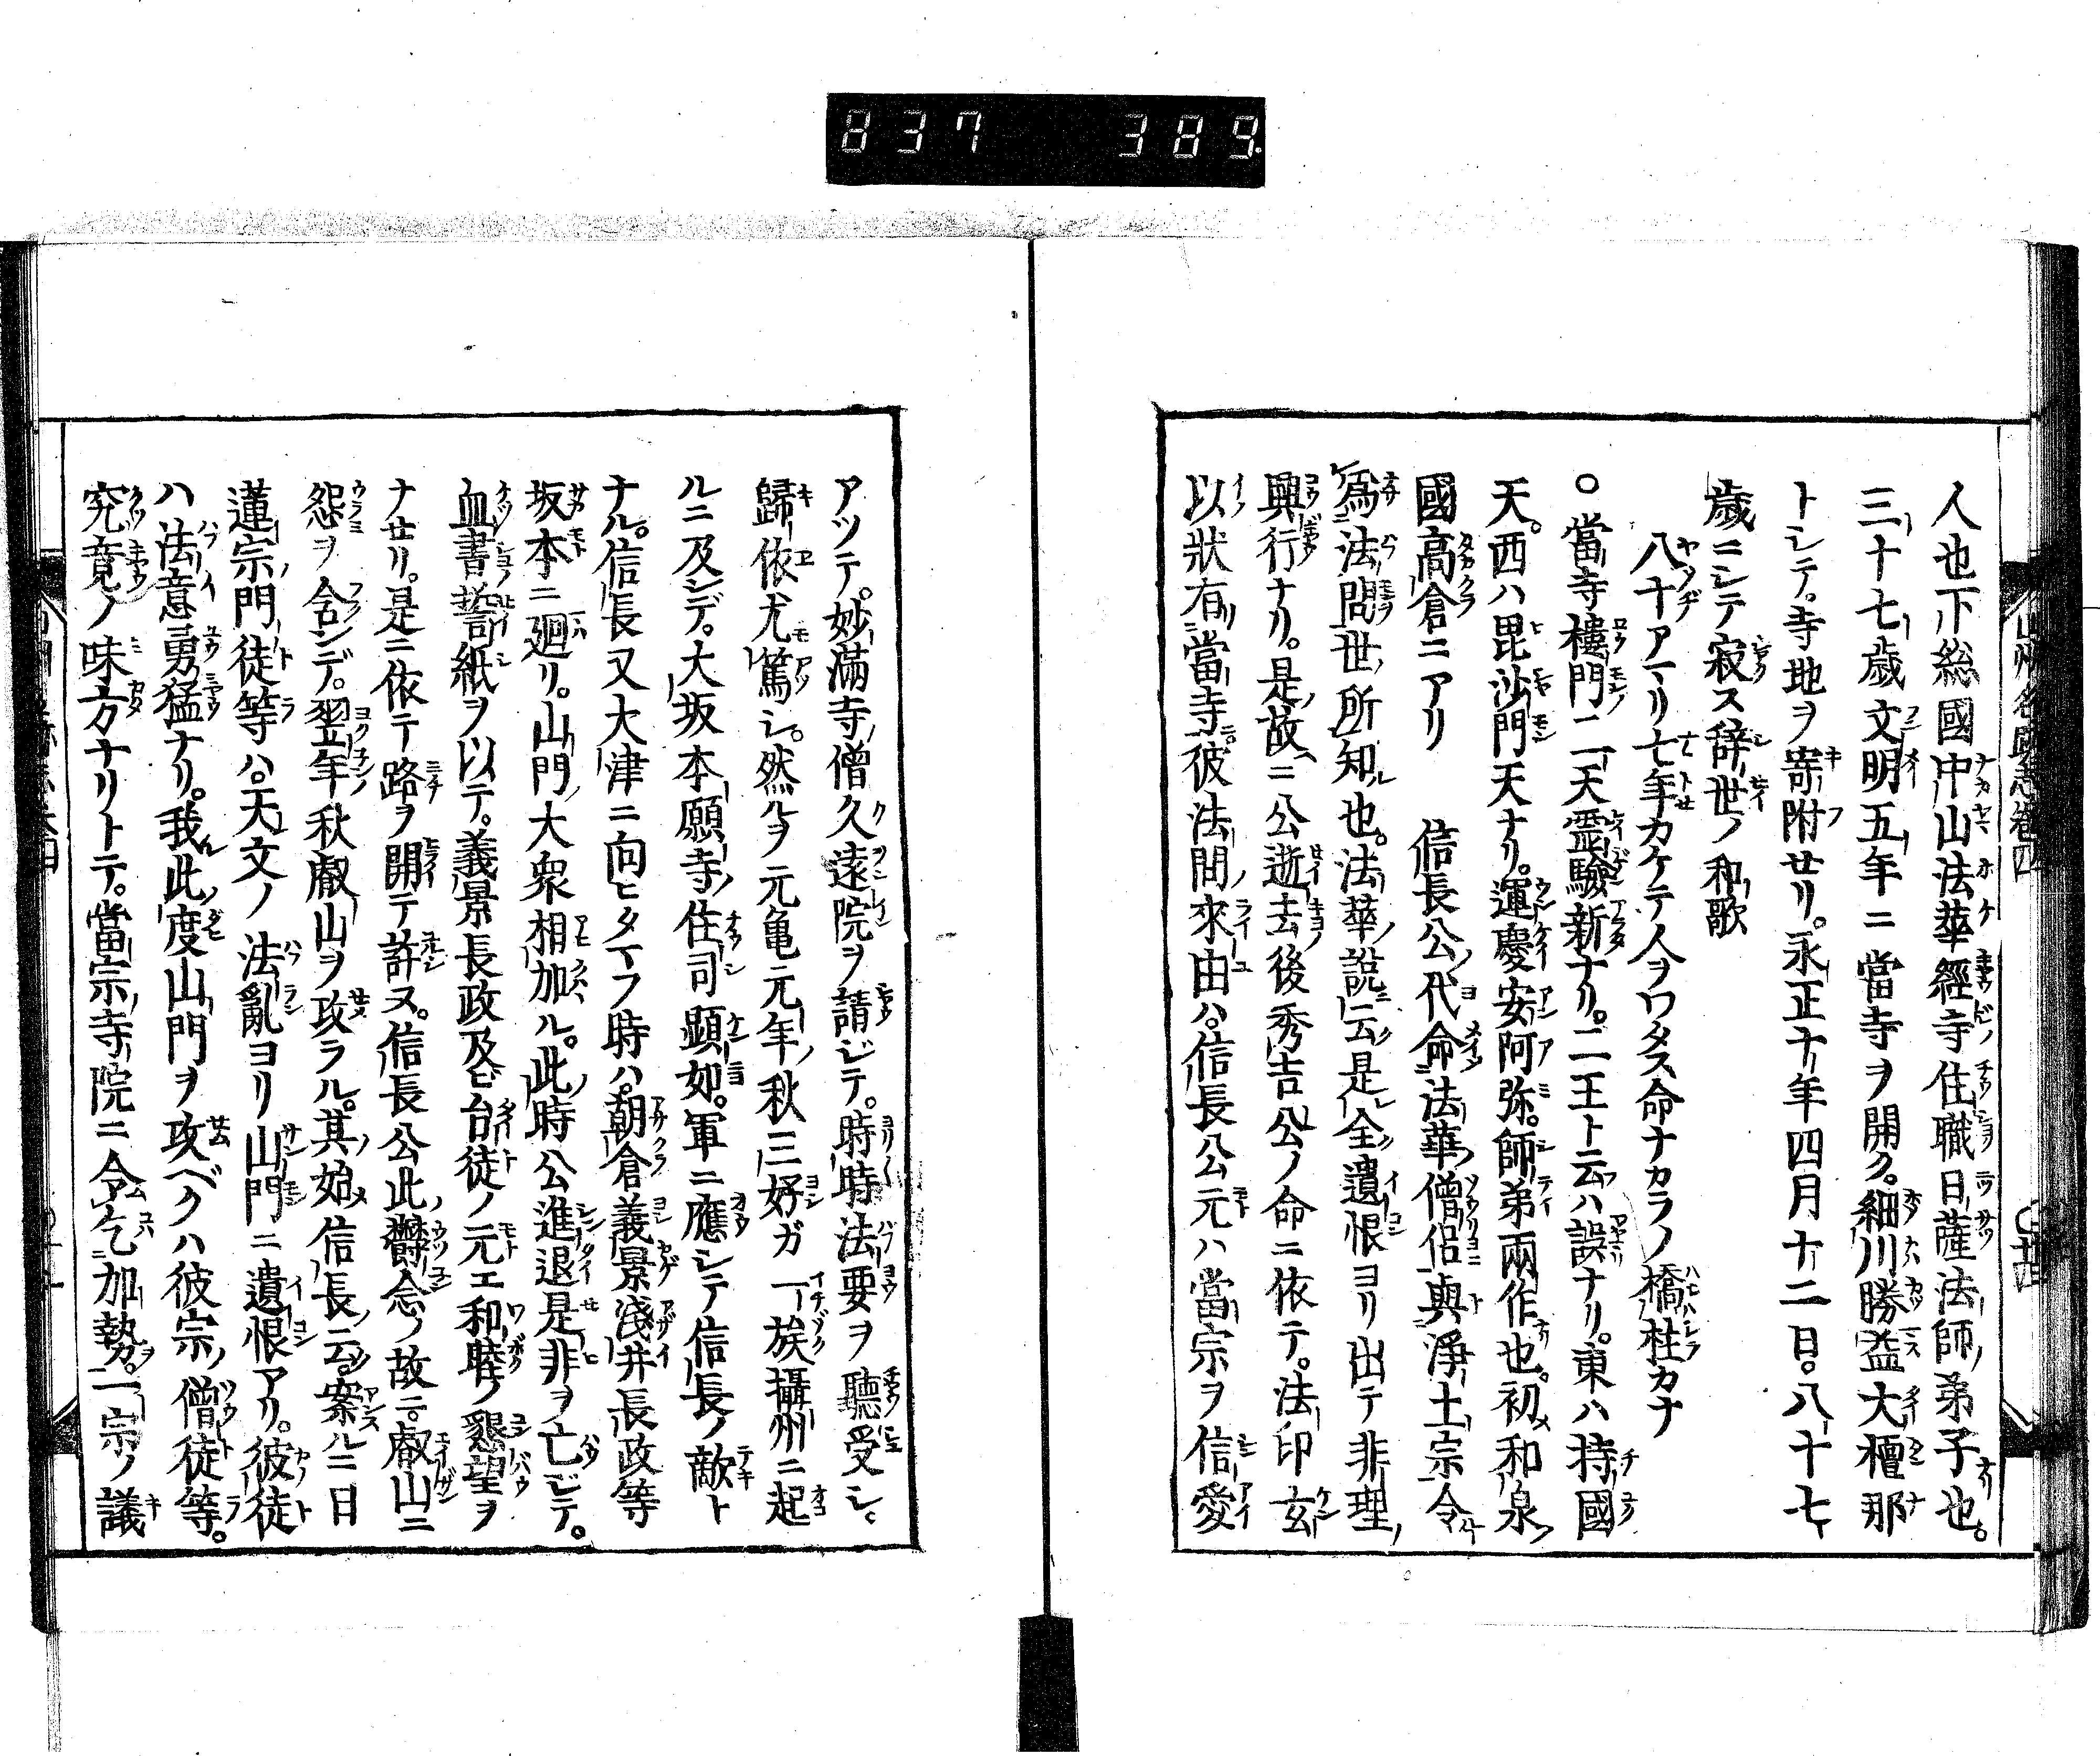 837 389
人也下総國中山法華經寺住職日薩法師弟子也。
三十七歳文明五年ニ當寺ヲ開ク。細川勝益大檀那
トシテ。寺地ヲ寄附せリ。永正十年四月十二日。八十七
歳ニシテ寂ス辞世ノ和歌
八十アマリ七年カケテ人ヲワタス命ナカラノ橋柱カナ
○當寺樓門二天霊驗新ナリ。二王ト云ハ誤ナリ。東ハ持國
天。西ハ毘沙門天ナリ。運慶安阿弥。師弟兩作也。初和泉
國高倉ニアリ 信長公代命法華僧侶與浄土宗令
爲法問世所知也。法華説云是全遺恨ヨリ出テ非理
興行ナリ。是故ニ公逝去後秀吉公ノ命ニ依テ。法印玄
以狀有當寺彼法問來由ハ。信長公元ハ當宗ヲ信愛
アツテ。妙滿寺僧久遠院ヲ請ジテ。時時法要ヲ聽受シ、
歸依尤篤シ。然ルヲ元亀元年秋三好ガ一族攝州ニ起
ルニ及ンデ。大坂本願寺住司顕如。軍ニ應シテ信長ノ敵ト
ナル。信長又大津ニ向ヒタマフ時ハ。朝倉義景淺井長政等
坂本ニ廻リ。山門大衆相加ル。此時公進退是非ヲ亡ジテ。
血書誓紙ヲ以テ。義景長政及ビ台徒ノ元エ和睦ノ懇望ヲ
ナせリ。是ニ依テ路ヲ開テ許ス。信長公此欝念ノ故ニ。叡山ニ
怨ヲ含ンデ。翌年秋叡山ヲ攻ラル。其始信長云案ルニ日
蓮宗門徒等ハ。天文ノ法亂ヨリ山門ニ遺恨アリ。彼徒
ハ法意勇猛ナリ。我此度山門ヲ攻ベクハ彼宗僧徒等。
究竟ノ味方ナリトテ。當宗寺院ニ令乞加勢。一宗ノ議